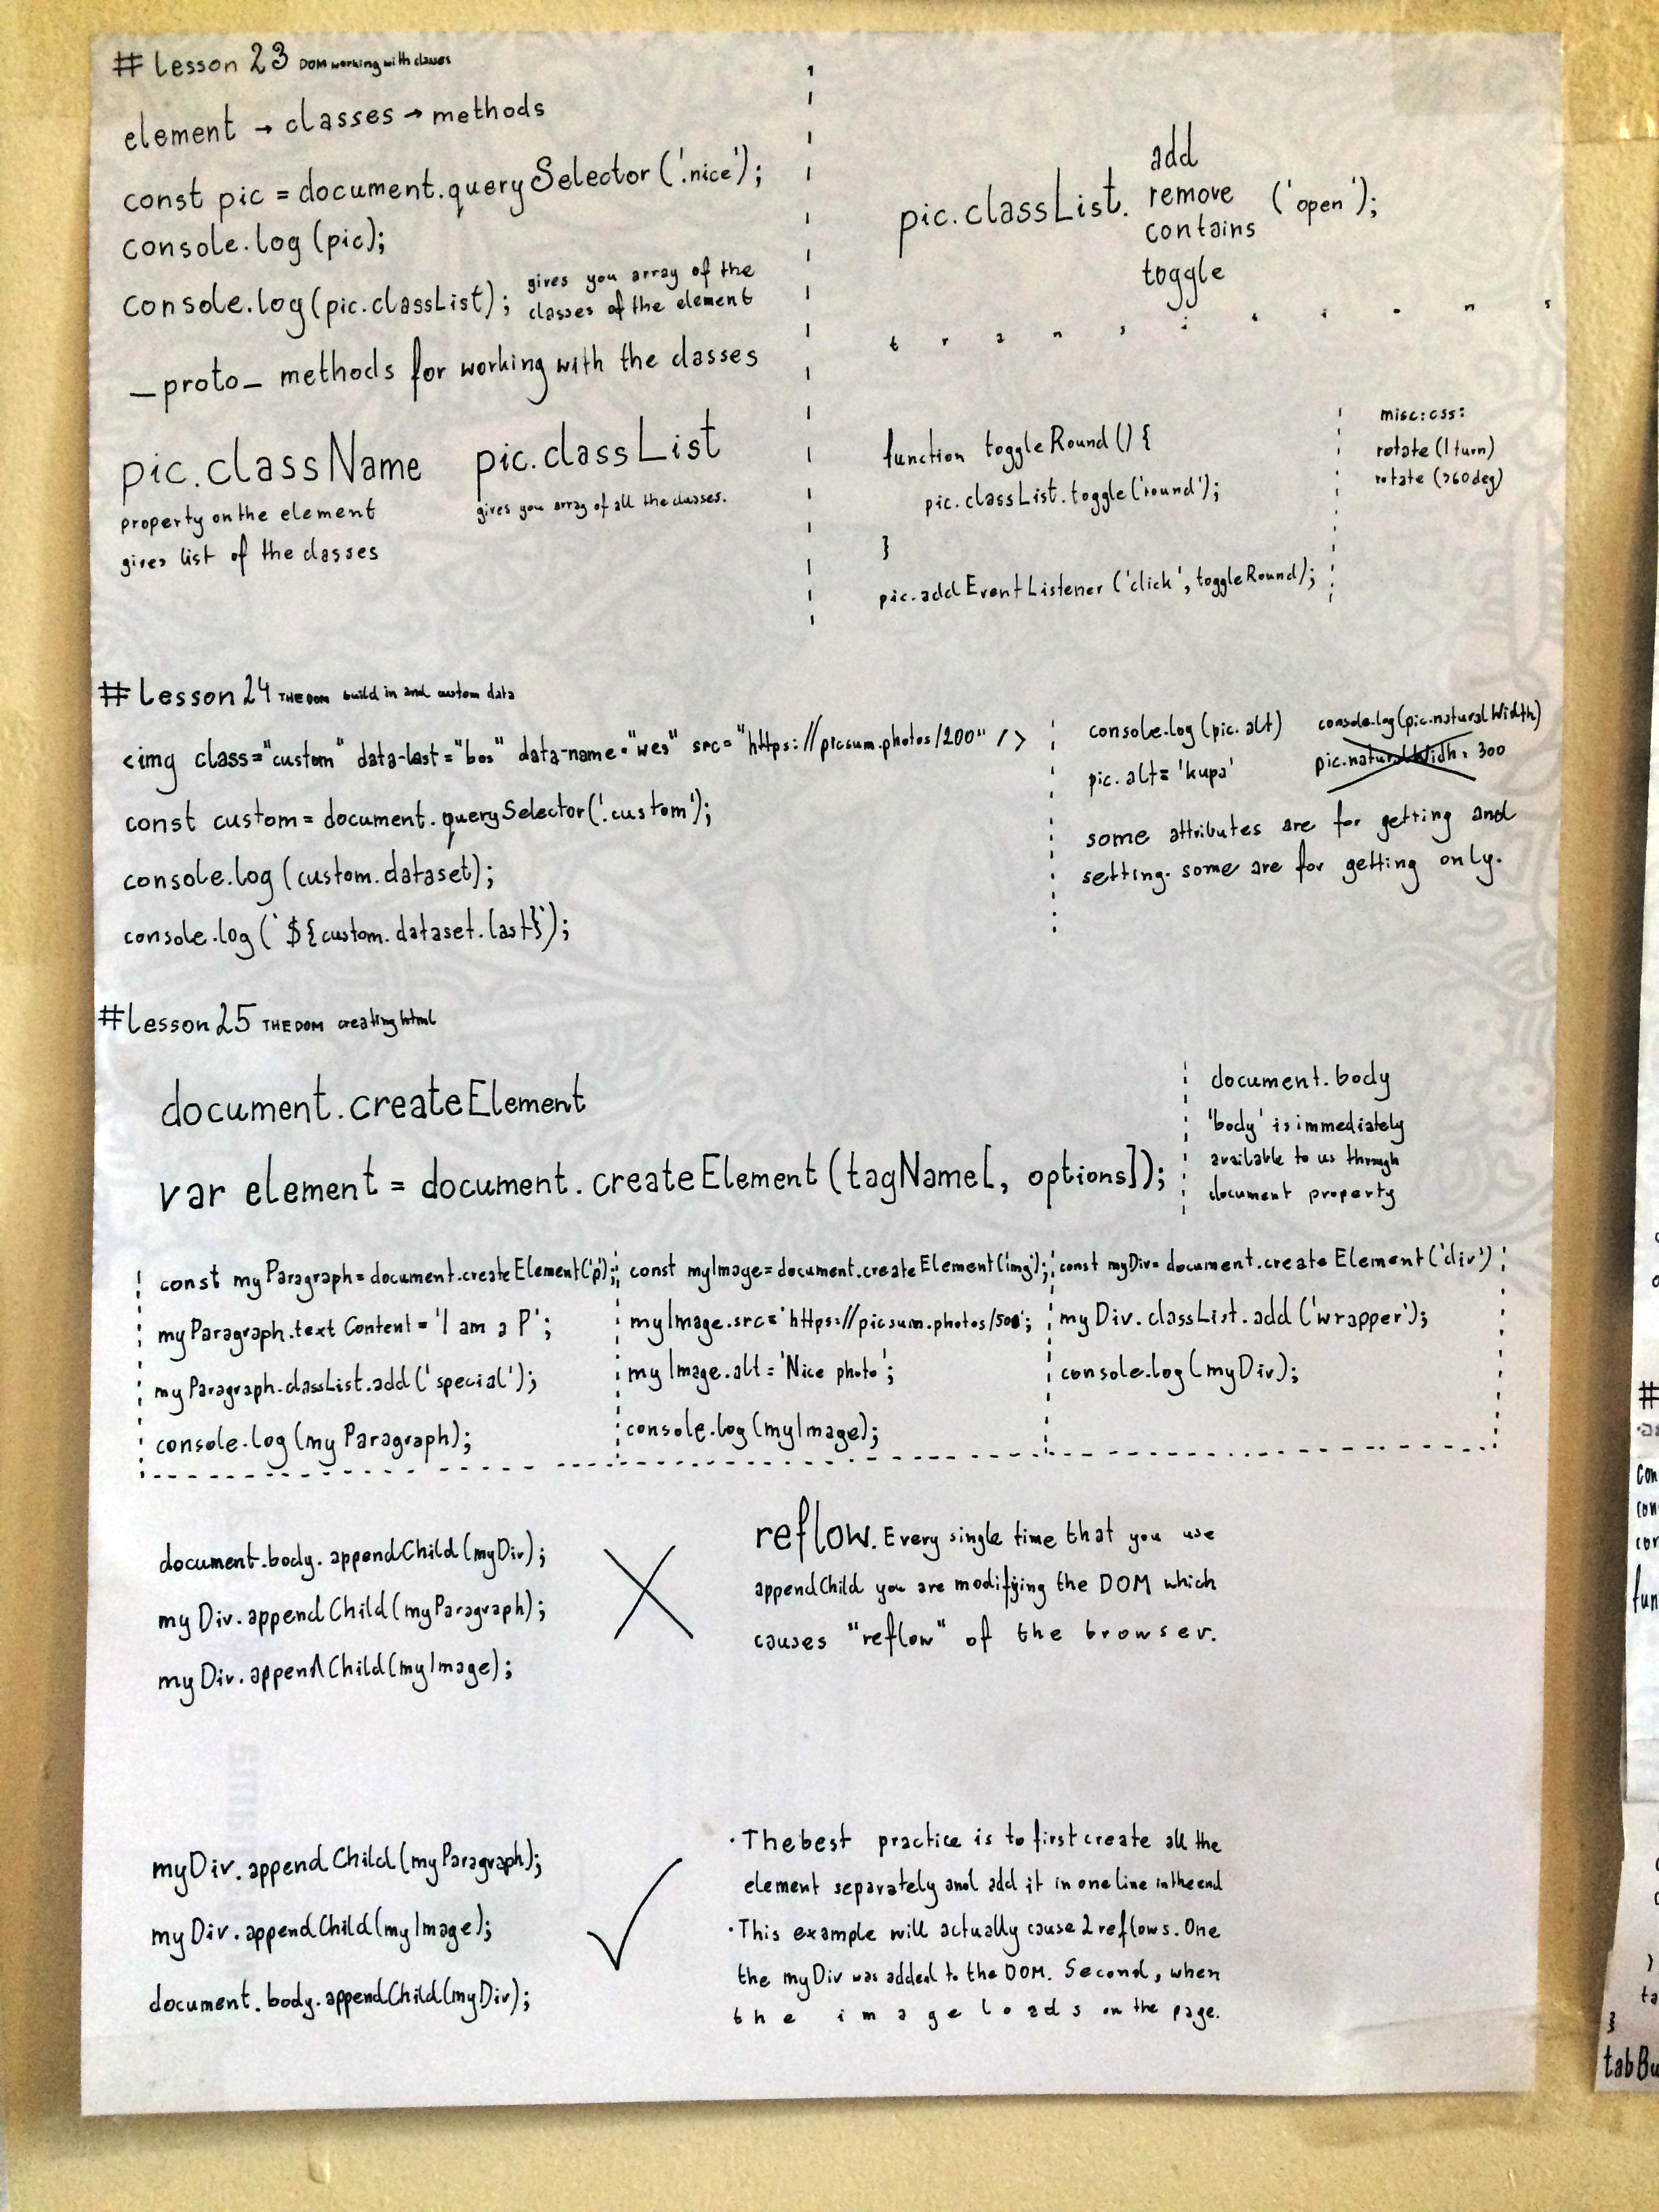 # Lesson 23 DOM working with classes
element → classes → methods
const pic = document.querySelector('.nice');
console.log(pic);
console.log(pic.classList); gives you array of the
classes of the element
_proto_ methods for working with the classes
pic.className
property on the element
gives list of the classes
pic.classList
gives you array of all the classes.
add
remove
pic.classList. contains ('open');
toggle
transitions
function toggleRound() {
pic.classList.toggle('round');
}
pic.addEventListener('click', toggleRound);
misc:css:
rotate(1turn)
rotate(360deg)
# Lesson 24 THE DOM build in and custom data
<img class="custom" data-last="bos" data-name="wes" src="https://picsum.photos/200" />
const custom = document.querySelector('.custom');
console.log(custom.dataset);
console.log(`${custom.dataset.last}`);
console.log(pic.alt)
pic.alt = 'kupa'
console.log(pic.naturalWidth)
pic.naturalWidth = 300
some attributes are for getting and
setting. some are for getting only.
# Lesson 25 THE DOM creating html
document.createElement
var element = document.createElement(tagName[, options]);
document.body
'body' is immediately
available to us through
document property
const myParagraph = document.createElement('p');
myParagraph.textContent = 'I am a P';
myParagraph.classList.add('special');
console.log(myParagraph);
const myImage = document.createElement('img');
myImage.src = 'https://picsum.photos/500';
myImage.alt = 'Nice photo';
console.log(myImage);
const myDiv = document.createElement('div')
myDiv.classList.add('wrapper');
console.log(myDiv);
document.body.appendChild(myDiv);
myDiv.appendChild(myParagraph);
myDiv.appendChild(myImage);
reflow. Every single time that you use
appendChild you are modifying the DOM which
causes "reflow" of the browser.
myDiv.appendChild(myParagraph);
myDiv.appendChild(myImage);
document.body.appendChild(myDiv);
· The best practice is to first create all the
element separately and add it in one line in the end
· This example will actually cause 2 reflows. One
the myDiv was added to the DOM. Second, when
the image loads on the page.
#
con
fun
}
tabBu